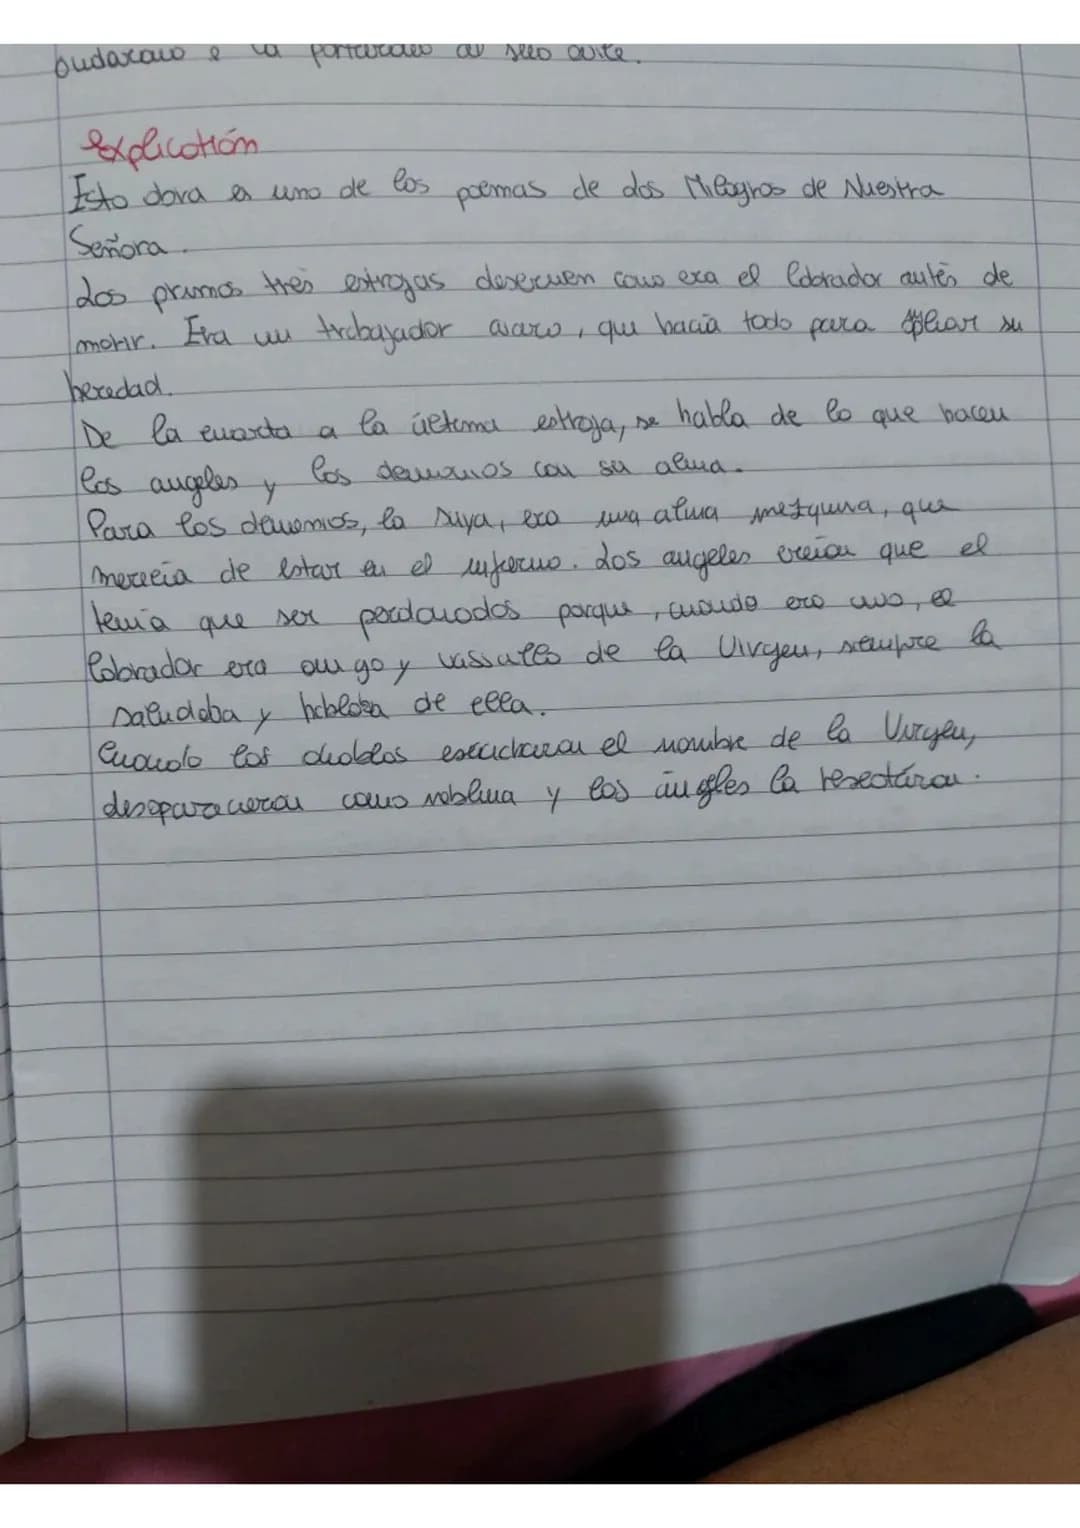 pudarano e la portarono al suo ovile.
Explicatión
Esto dova es uno de los poemas de dos Milagros de Nuestra
Señora.
Los primos tres estrojas describuen como era el labrador antés de
morir. Era un trabajador avaro, que hacia todo para apliar su
heredad.
De la cuarta a la última estroja, se habla de lo que hacen
los angeles y los demonios con su alma.
Para los demonios, la suya, era una alma mezquina, que
mereeia de estar en el inferno. Los angeles creian que el
tenia que ser perdonados porque, cuando era vivo, el
labrador era amigo y vassalles de la Virgen, siempre la
saludaba y hablaba de ella.
Cuando los diablos escucharon el nombre de la Virgen,
desapparecieron como neblina y los ángeles la resectáron.